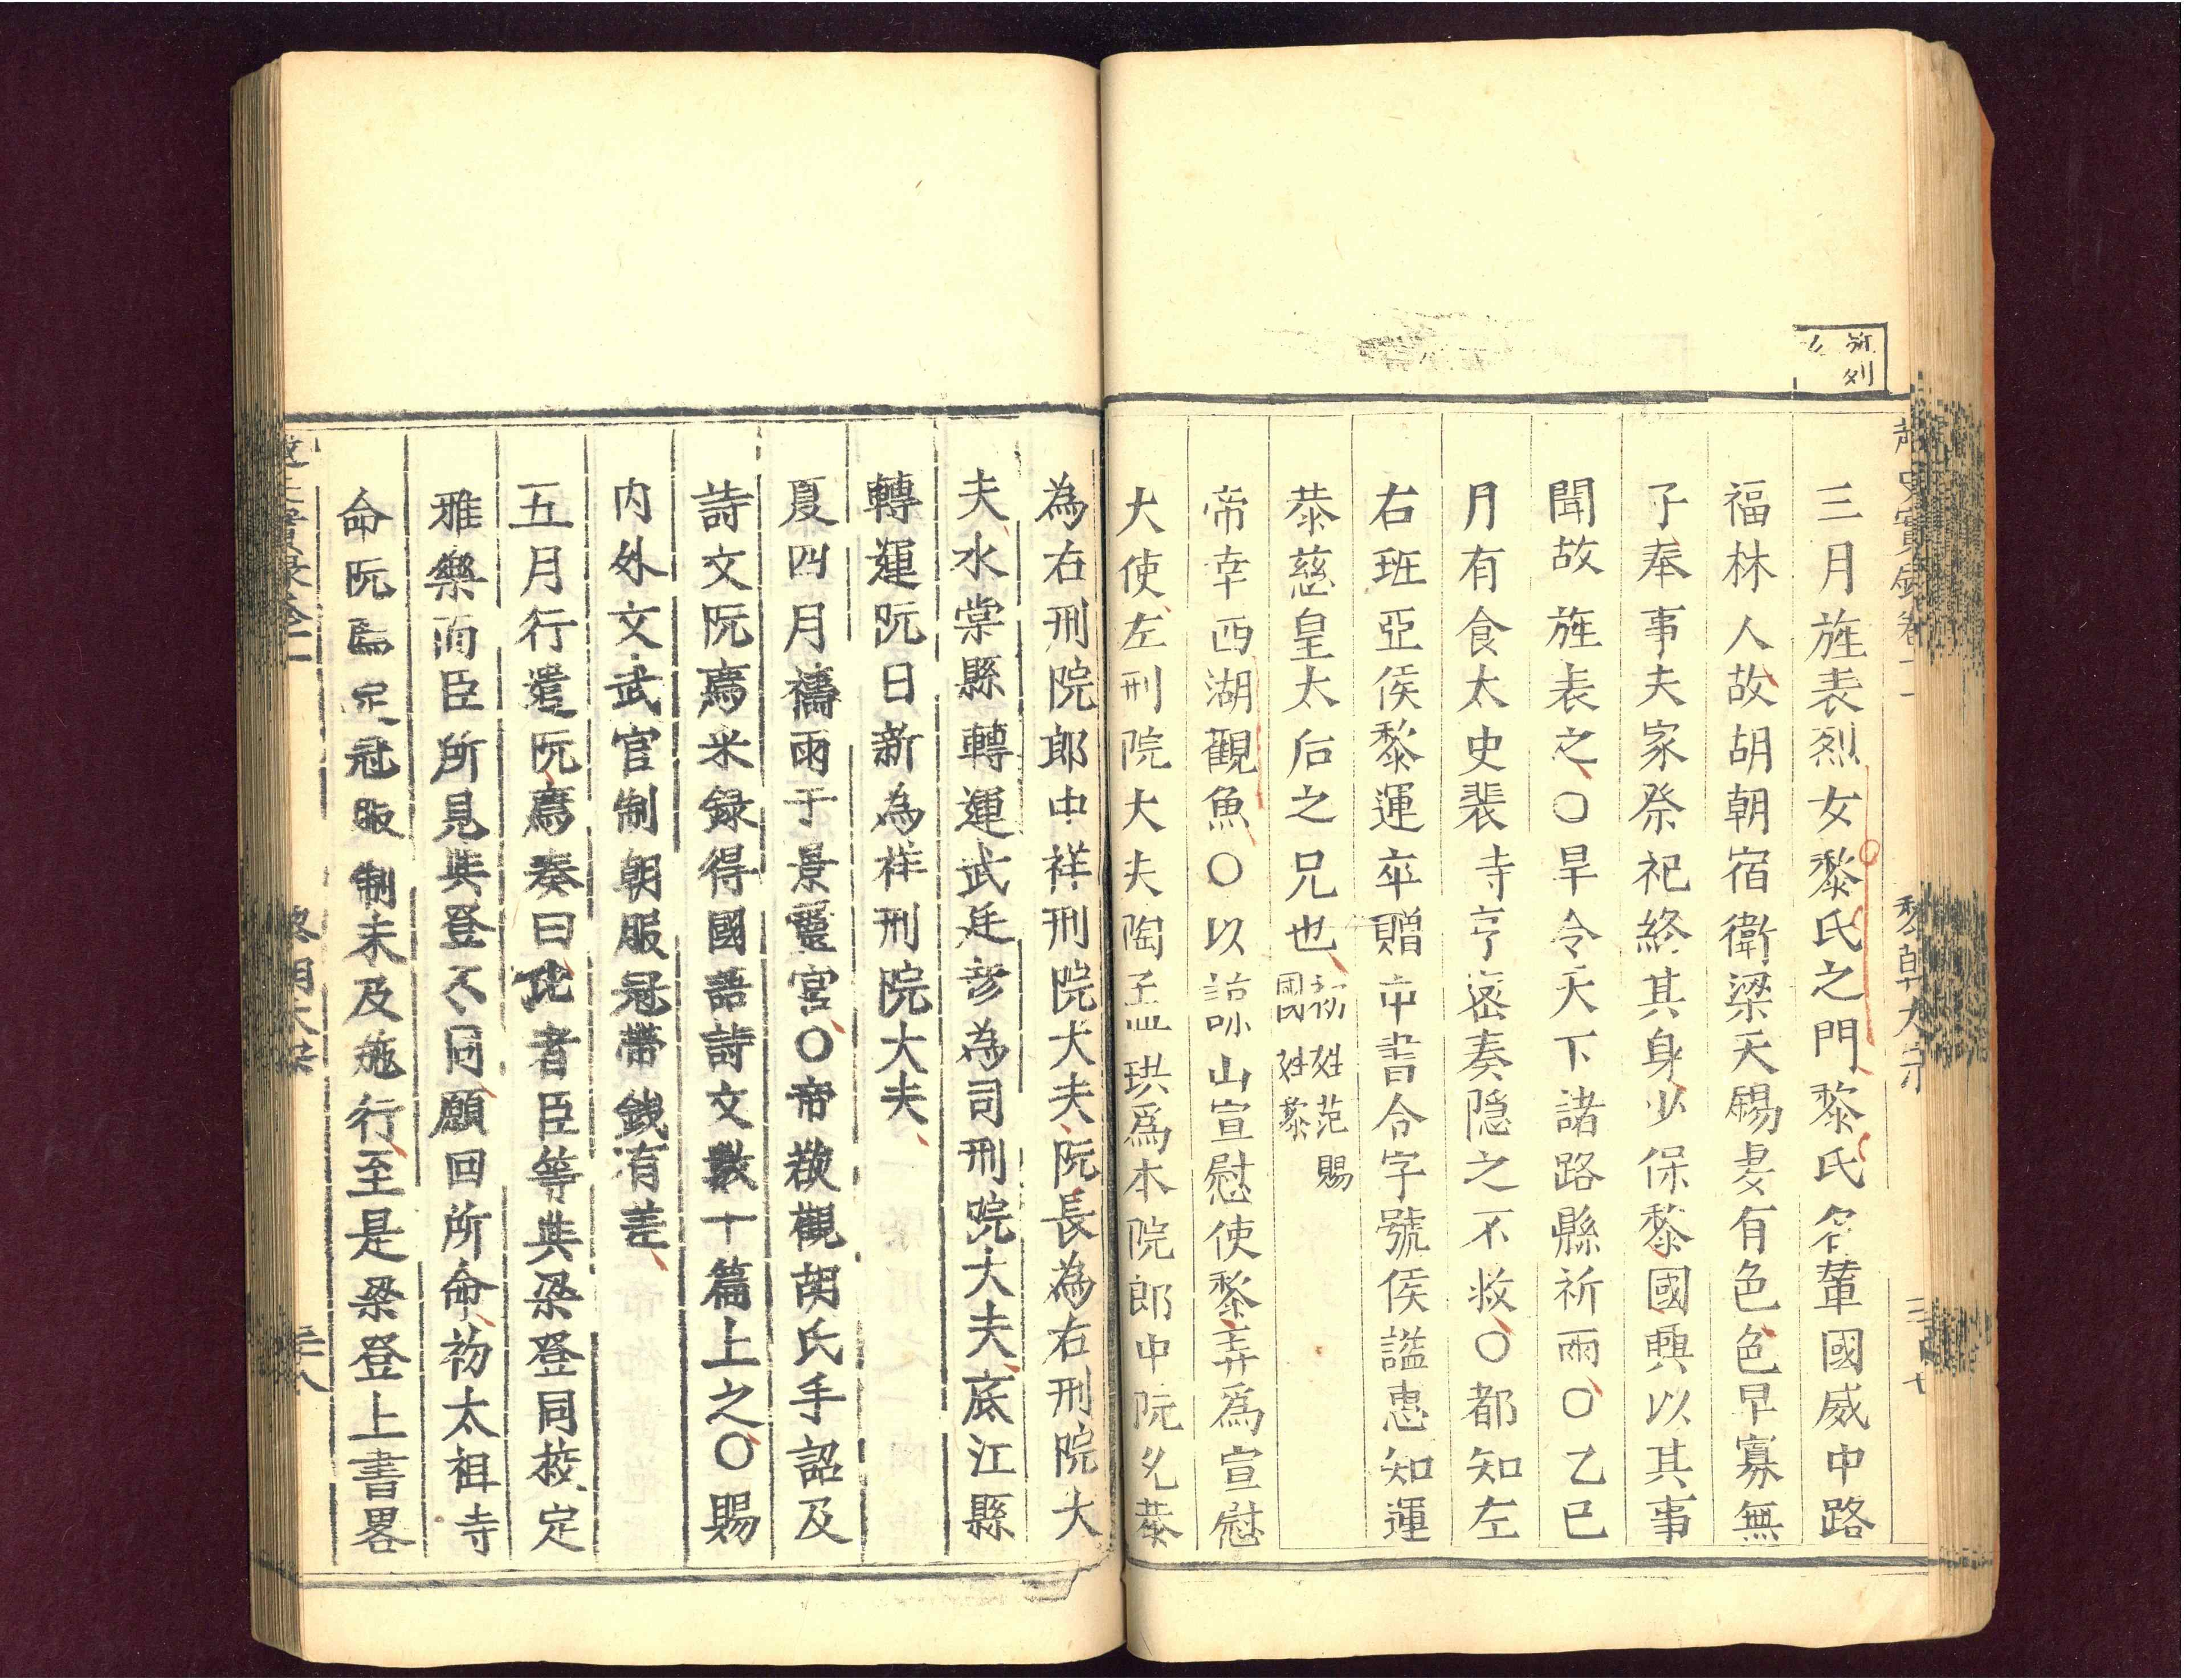 旌列
女
三月旌表烈女黎氏之門黎氏名蕐國威中路
福林人故胡朝宿衛梁天錫妻有色色早寡無
子奉事夫家祭祀終其身少保黎國興以其事
聞故旌表之〇旱令天下諸路縣祈雨〇乙巳
月有食太史裴寺亨密奏隐之不救〇都知左
右班亞侯黎運卒贈中書令字號侯謚惠知運
恭慈皇太后之兄也初姓范賜
國姓黎
帝幸西湖觀魚〇以諒山宣慰使黎弄爲宣慰
大使左刑院大夫陶孟珙爲本院郎中阮允恭
為右刑院郎中祥刑院大夫阮長為右刑院大
夫水棠縣轉運武廷彦為司刑院大夫底江縣
轉運阮日新為祥刑院大夫
夏四月禱雨于景靈宮〇帝欲觀胡氏手詔及
詩文阮廌采録得國語詩文數十篇上之〇賜
内外文武官制朝服冠帶錢有差
五月行遣阮廌奏曰比者臣等與梁登同校定
雅樂而臣所見與登不同願回所命初太祖寺
命阮廌定冠服制未及施行至是梁登上書畧
越史實録卷十一
黎朝太宗
三十七
黎朝太宗
三十八